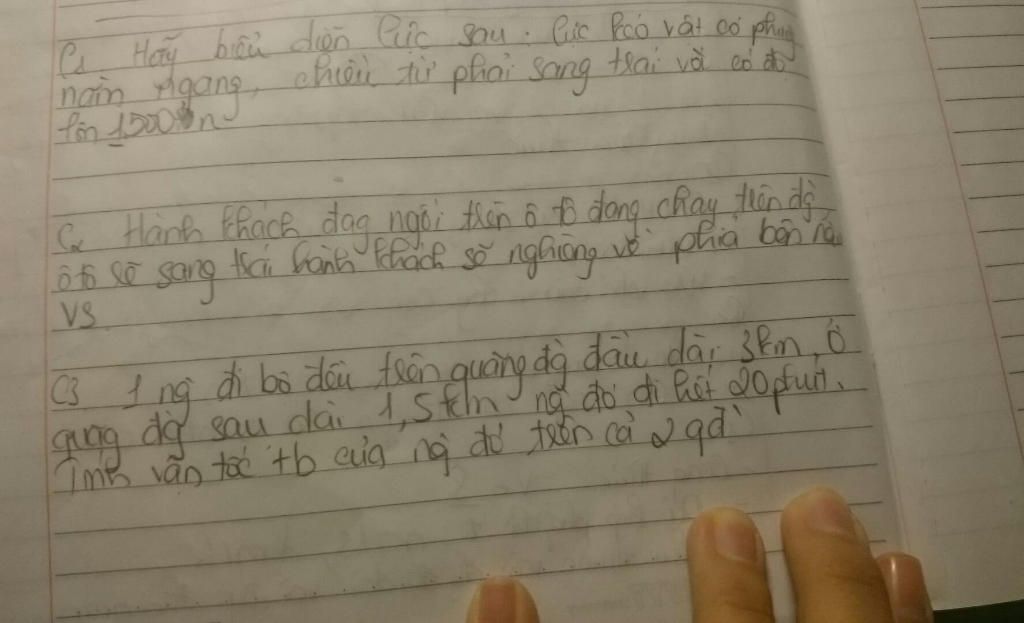 C1 Hãy biểu diễn lực sau: lực kéo vật có phg
nằm ngang, chiều từ phải sang trái và có độ
lớn 1500 n
C2 Hành khách đag ngồi trên ô tô đang chạy trên đg
ôtô sẽ sang trái hành khách sẽ nghiêng về phía bên nào
VS
C3 1 ng đi bộ đều trên quãng đg đầu dài 3km, ở
quag đg sau dài 1,5 km ng đó đi hết 20 phút.
Tính vân tốc tb của ng đó trên cả 2 qđ